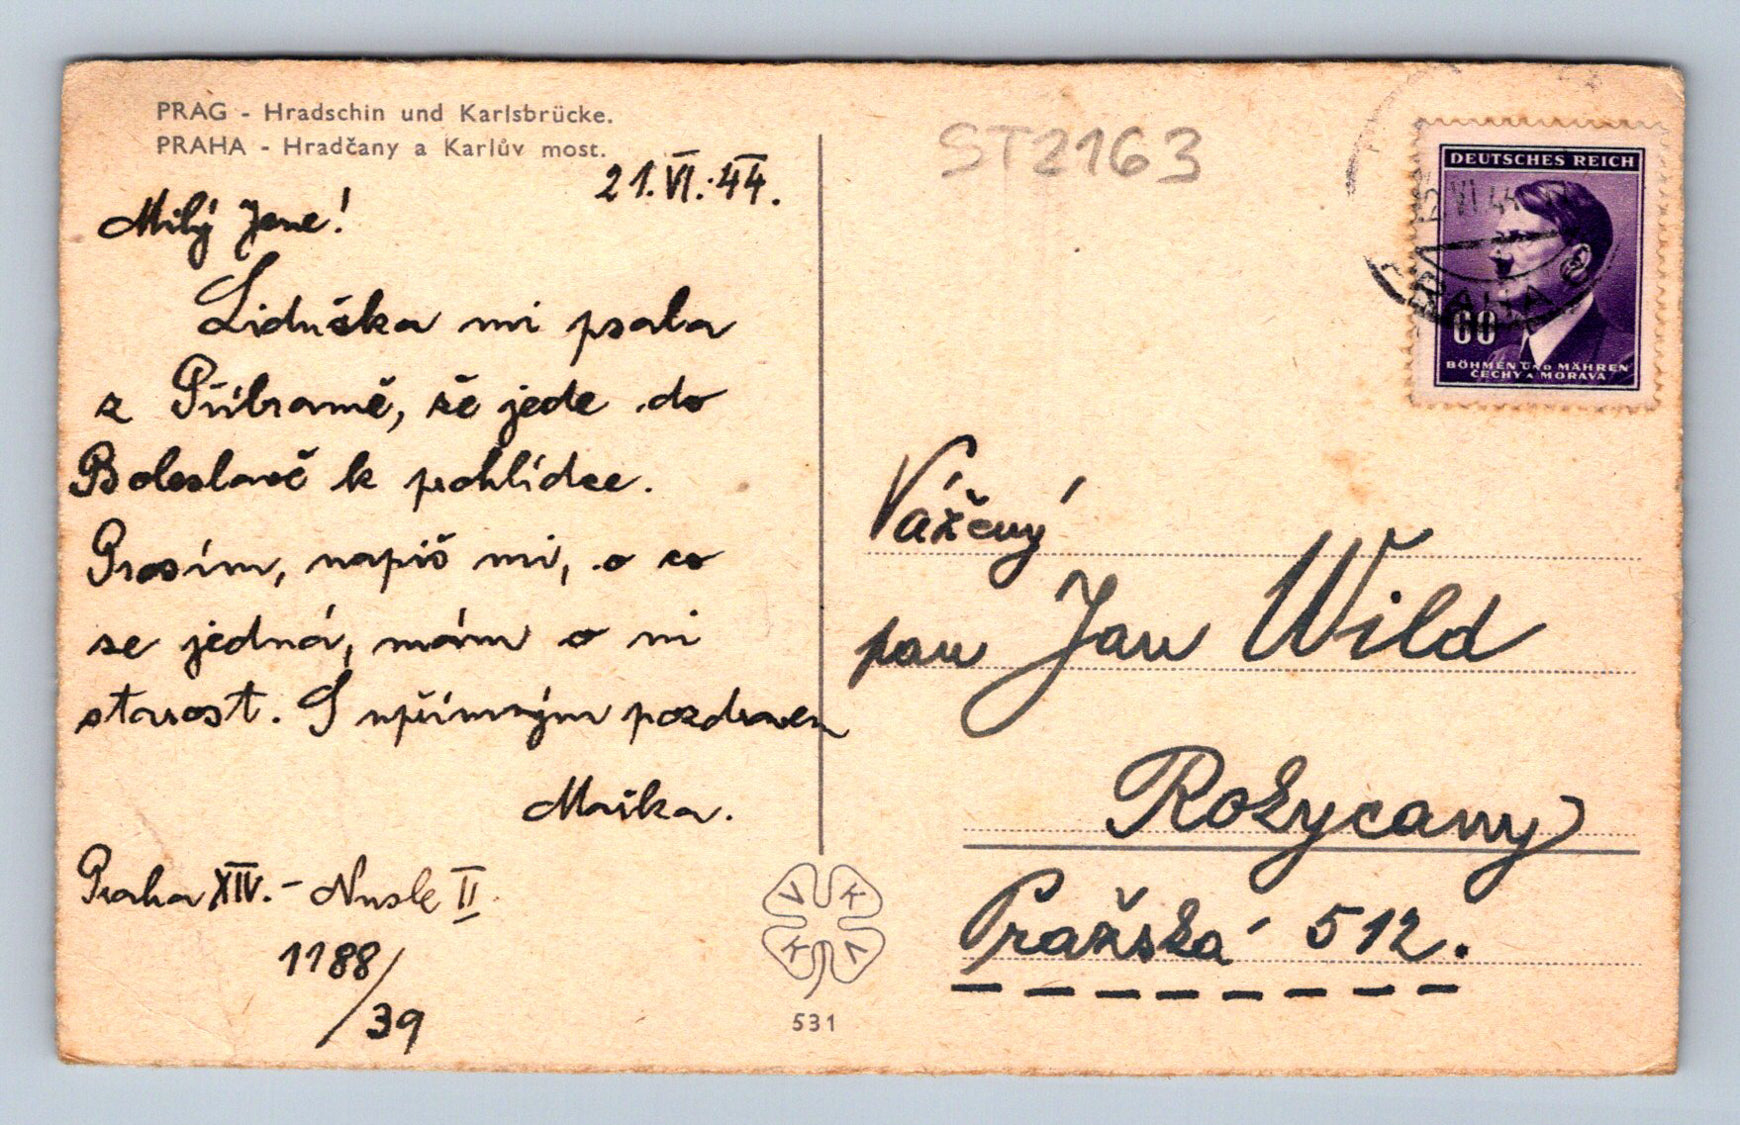 PRAG - Hradschin und Karlsbrücke.
PRAHA - Hradčany a Karlův most.
21.VI.44.
Milý Jene!
Liduška mi psala
z Příbramě, že jede do
Boleslavě k prohlídce.
Prosím, napiš mi, o co
se jedná, mám o ni
starost. S upřímným pozdravem
Maška.
Praha XIV. - Nusle II
1188/
/39
ST2163
DEUTSCHES REICH
VI 44
PRAHA
60
BÖHMEN UND MÄHREN
ČECHY A MORAVA
Vážený
pan Jan Wild
Rokycany
Pražská 512.
V K
K V
531